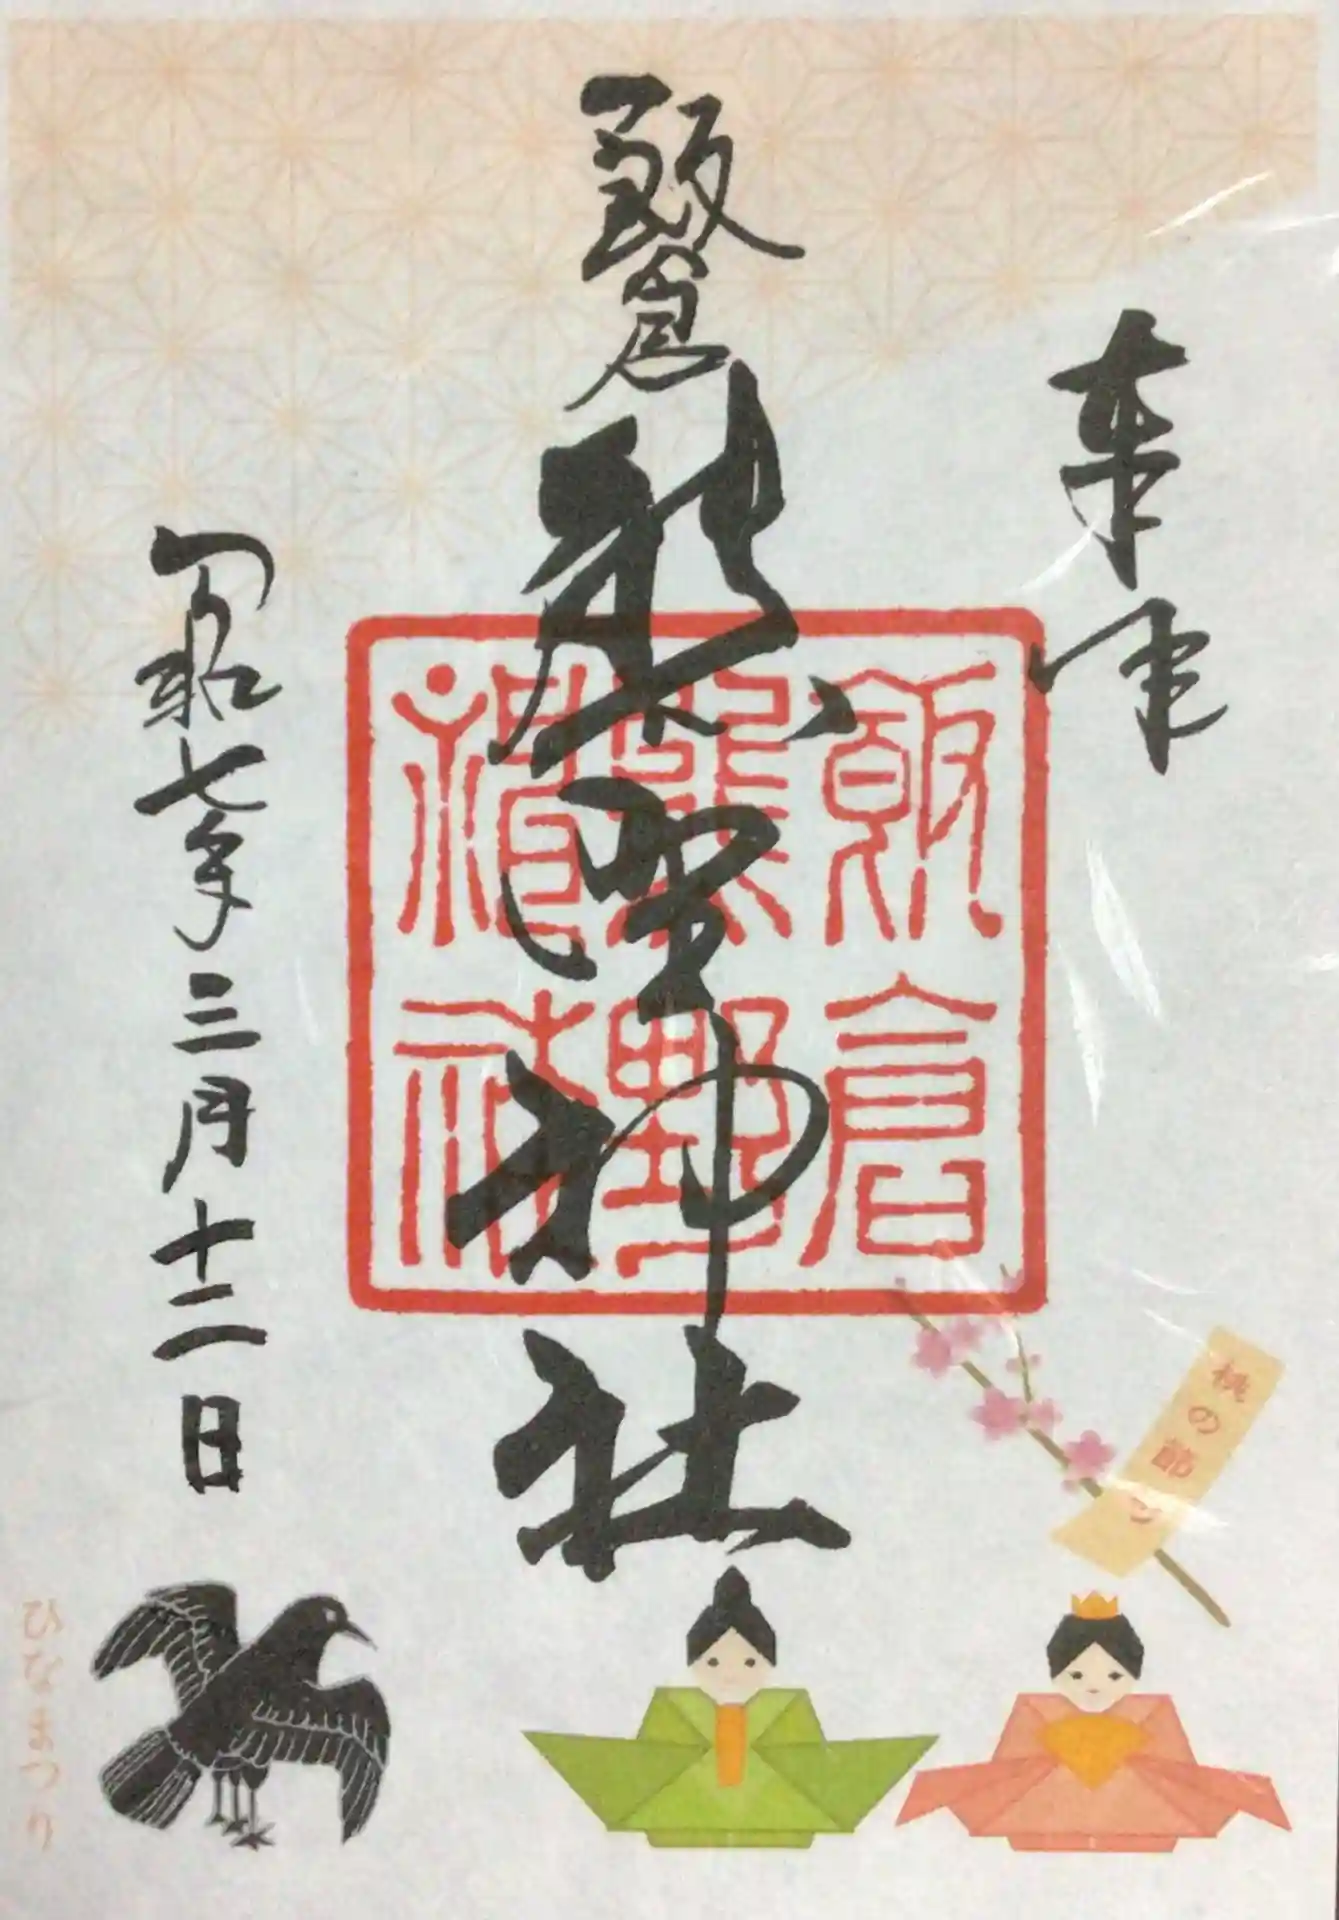 奉拝
飯倉
熊野神社
令和七年三月十二日
飯倉
熊野
神社
桃の節句
ひなまつり